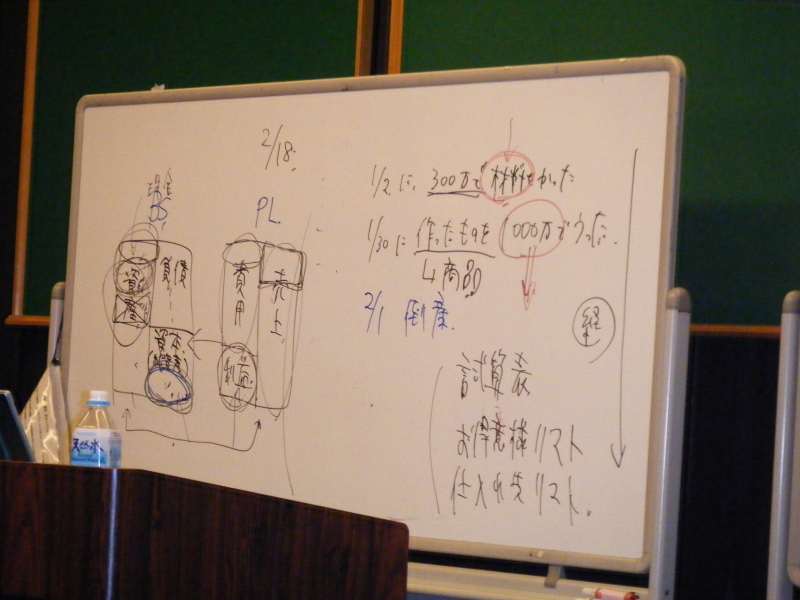 2/18
現金
BS
PL
資産
負債
資本
費用
売上
利益
1/2に、300万で材料をかった
1/30に作ったものを1000万でうった。
↳商品
2/1 倒産.
経
試算表
お得意様リスト
仕入れ先リスト。
天然水